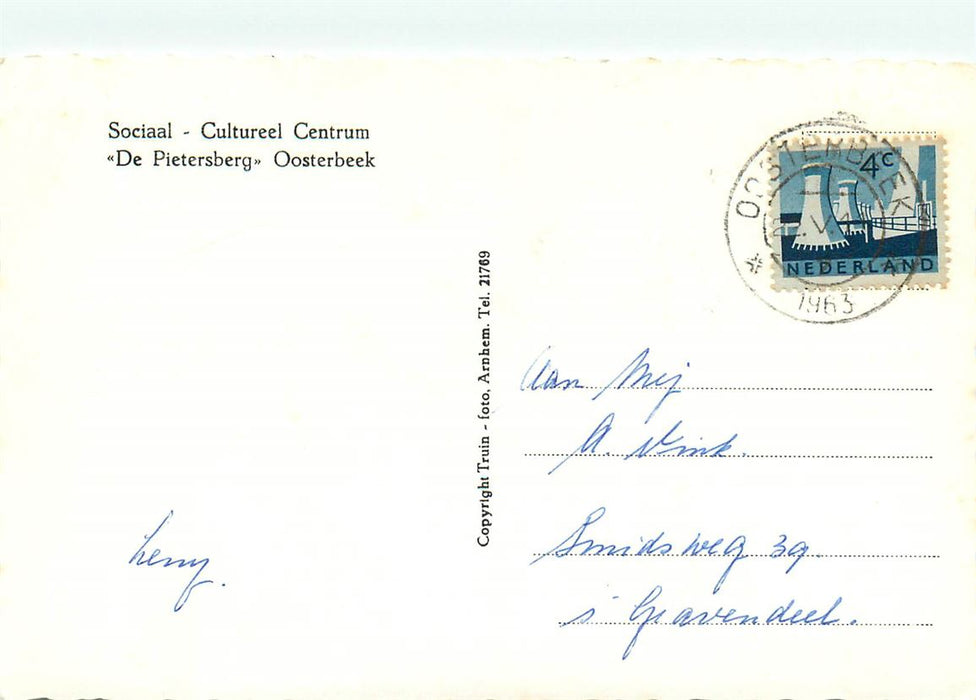 Sociaal - Cultureel Centrum
«De Pietersberg» Oosterbeek
OOSTERBEEK
1963
4c
NEDERLAND
Copyright Truin - foto, Arnhem. Tel. 21769
Aan Mej
A. Vink.
Smidsweg 39.
s' Gravendeel.